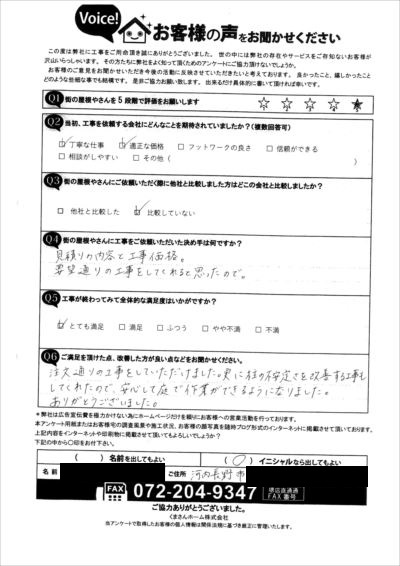 Voice!
お客様の声をお聞かせください
この度は弊社に工事をご用命頂き誠にありがとうございました。世の中には弊社の存在やサービスをご存知ないお客様が
沢山いらっしゃいます。その方たちに弊社をよく知って頂くためのアンケートにご協力頂けないでしょうか。
お客様のご意見をお聞かせいただき今後の活動に反映させていただきたいと考えております。良かったこと、嬉しかったこと
どのような些細な事でも結構です。是非ご協力お願い致します。出来るだけ具体的に書いて頂ければ幸いです。
Q1 街の屋根やさんを5段階で評価をお願いします ☆ ☆ ☆ ☆ ★
Q2 当初、工事を依頼する会社にどんなことを期待されていましたか？(複数回答可)
☑丁寧な仕事 ☑適正な価格 □フットワークの良さ □信頼ができる
□相談がしやすい □その他( )
Q3 街の屋根やさんにご依頼いただく際に他社と比較しました方はどこの会社と比較しましたか？
□他社と比較した ☑比較していない
Q4 街の屋根やさんに工事をご依頼いただいた決め手は何ですか？
見積りの内容と工事価格。
要望通りの工事をしてくれると思ったので。
Q5 工事が終わってみて全体的な満足度はいかがですか？
☑とても満足 □満足 □ふつう □やや不満 □不満
Q6 ご満足を頂けた点、改善した方が良い点などをお聞かせください。
注文通りの工事をしていただけました。更に柱の不安定さを改善する工事も
してくれたので、安心して庭で作業ができるようになりました。
ありがとうございました。
＊弊社は広告宣伝費を極力かけない為にホームページだけを頼りにお客様への営業活動を行っております。
本アンケート用紙またはお客様宅の調査風景や施工状況、お客様の顔写真を随時ブログ形式のインターネットに掲載させて頂いております。
上記内容をインターネットや印刷物に掲載させて頂いてもよろしいでしょうか？
下記の中から○印をお付け下さい。
( )名前を出してもよい (○)イニシャルなら出してもよい
名前 ご住所 河内長野市
FAX 072-204-9347 堺店直通
FAX番号
ご協力ありがとうございました。
くまさんホーム株式会社
当アンケートで取得したお客様の個人情報は関係法規に基づき厳正に管理いたします。